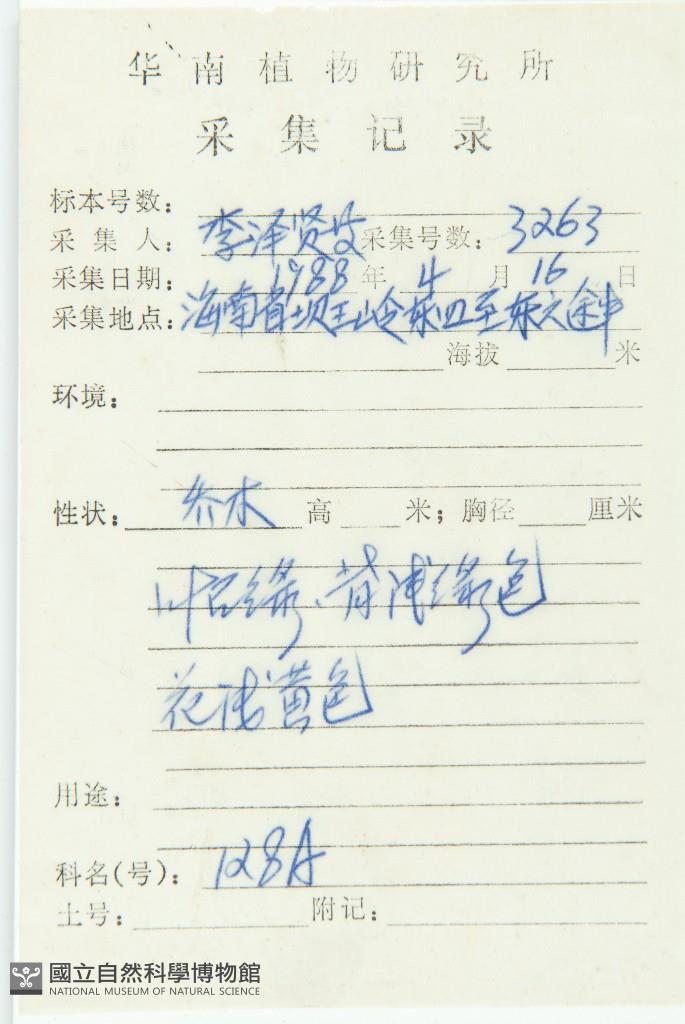 华南植物研究所
采集记录
标本号数：
采集人：李泽贤 采集号数：3263
采集日期：1988年4月16日
采集地点：海南省坝王岭东四至东六
海拔 米
环境：
性状：乔木 高 米；胸径 厘米
叶 绿、背浅绿色
花浅黄色
用途：
科名(号)：128A
土号： 附记：
國立自然科學博物館
NATIONAL MUSEUM OF NATURAL SCIENCE